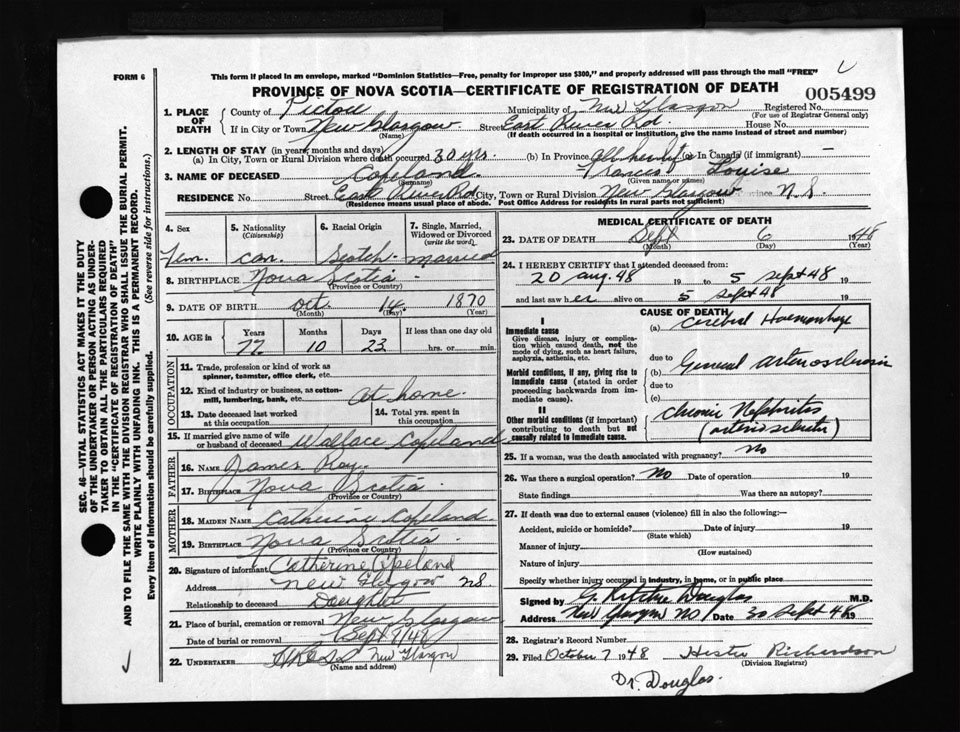 FORM 6
This form if placed in an envelope, marked "Dominion Statistics—Free, penalty for improper use $300," and properly addressed will pass through the mail "FREE"
PROVINCE OF NOVA SCOTIA—CERTIFICATE OF REGISTRATION OF DEATH
005499
1. PLACE OF DEATH
County of Pictou Municipality of New Glasgow Registered No.
(For use of Registrar General only)
If in City or Town New Glasgow Street East River Rd. House No.
(Name) (If death occurred in a hospital or institution, give the name instead of street and number)
2. LENGTH OF STAY (in years, months and days)
(a) In City, Town or Rural Division where death occurred 30 yrs. (b) In Province All her life (c) In Canada (if immigrant) —
3. NAME OF DECEASED Copeland Frances Louise
(Surname) (Given name or names)
RESIDENCE No. Street East River Rd City, Town or Rural Division New Glasgow Province N.S.
(Residence means usual place of abode. Post Office Address for residents in rural parts not sufficient)
4. Sex 5. Nationality (Citizenship) 6. Racial Origin 7. Single, Married, Widowed or Divorced (write the word)
Fem. Can. Scotch Married
8. BIRTHPLACE Nova Scotia
(Province or Country)
9. DATE OF BIRTH Oct. 14 1870
(Month) (Day) (Year)
10. AGE in Years Months Days If less than one day old
77 10 23 hrs. or min.
OCCUPATION
11. Trade, profession or kind of work as spinner, teamster, office clerk, etc.
12. Kind of industry or business, as cotton-mill, lumbering, bank, etc. At home.
13. Date deceased last worked at this occupation
14. Total yrs. spent in this occupation
15. If married give name of wife or husband of deceased Wallace Copeland
FATHER
16. NAME James Roy
17. BIRTHPLACE Nova Scotia
(Province or Country)
MOTHER
18. MAIDEN NAME Catherine Copeland
19. BIRTHPLACE Nova Scotia
(Province or Country)
20. Signature of informant Catherine Copeland
Address New Glasgow NS
Relationship to deceased Daughter
21. Place of burial, cremation or removal New Glasgow
Date of burial or removal Sept 9/48
22. UNDERTAKER New Glasgow
(Name and address)
MEDICAL CERTIFICATE OF DEATH
23. DATE OF DEATH Sept 6 1948
(Month) (Day) (Year)
24. I HEREBY CERTIFY that I attended deceased from:
20 Aug. 48 19 to 5 Sept 48 19
and last saw her alive on 5 Sept 48 19
CAUSE OF DEATH
I
Immediate cause
Give disease, injury or complication which caused death, not the mode of dying, such as heart failure, asphyxia, asthenia, etc.
(a) Cerebral Haemorrhage
due to
Morbid conditions, if any, giving rise to immediate cause (stated in order proceeding backwards from immediate cause).
(b) General arteriosclerosis
due to
(c)
II
Other morbid conditions (if important) contributing to death but not causally related to immediate cause.
Chronic Nephritis
25. If a woman, was the death associated with pregnancy? No
26. Was there a surgical operation? No Date of operation 19
State findings Was there an autopsy?
27. If death was due to external causes (violence) fill in also the following:—
Accident, suicide or homicide? Date of injury 19
(State which)
Manner of injury
(How sustained)
Nature of injury
Specify whether injury occurred in industry, in home, or in public place
Signed by G. Ritchie Douglas M.D.
Address New Glasgow Date 30 Sept 48 19
28. Registrar's Record Number
29. Filed October 7 1948 Hester Richardson
(Division Registrar)
Dr. Douglas.
SEC. 46—VITAL STATISTICS ACT MAKES IT THE DUTY
OF THE UNDERTAKER OR PERSON ACTING AS UNDER-
TAKER TO OBTAIN ALL THE PARTICULARS REQUIRED
IN THE "CERTIFICATE OF REGISTRATION OF DEATH"
AND TO FILE THE SAME WITH THE DIVISION REGISTRAR WHO SHALL ISSUE THE BURIAL PERMIT.
WRITE PLAINLY WITH UNFADING INK. THIS IS A PERMANENT RECORD.
Every item of information should be carefully supplied. (See reverse side for instructions.)